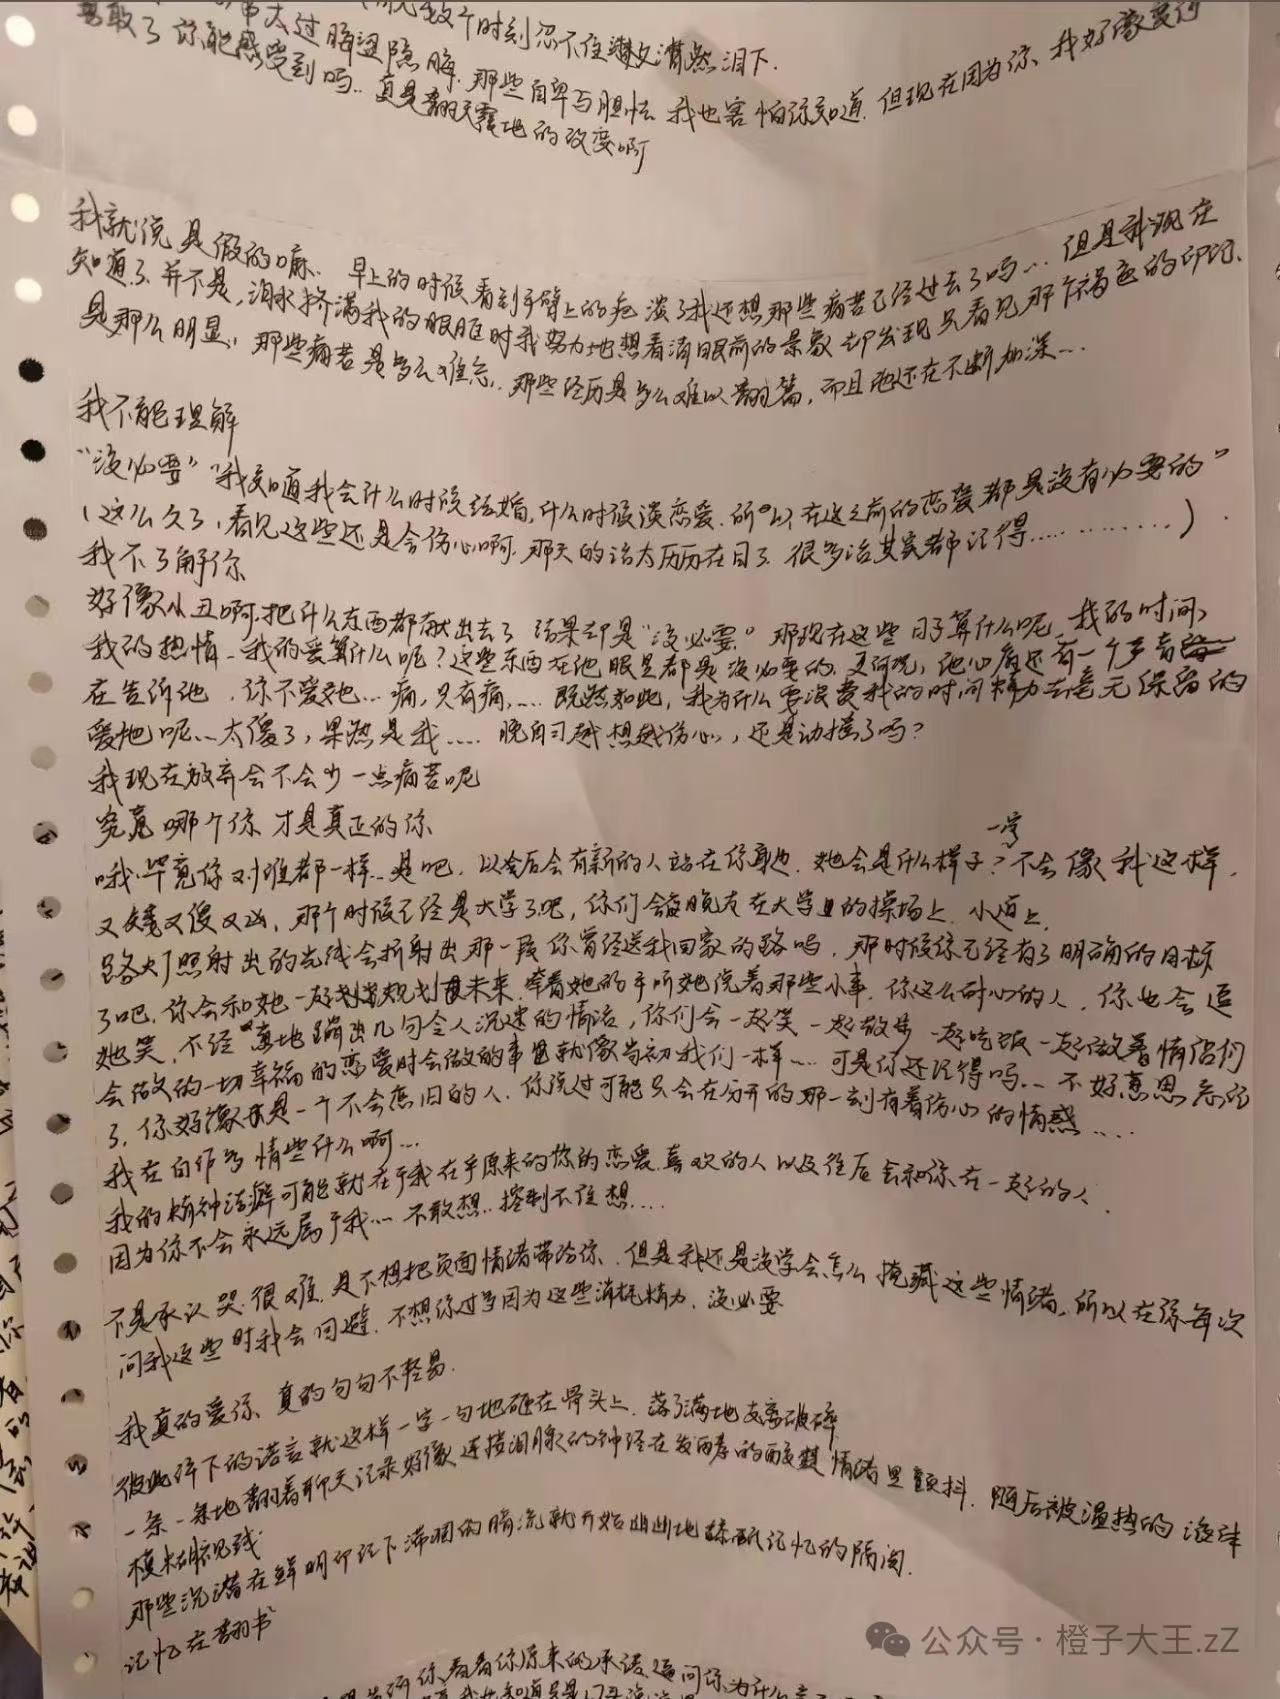 个时刻忍不住潸然泪下.
勇敢了 你能感受到吗.. 那些自卑与胆怯 我也害怕你知道. 但现在因为你、我好像变得
真是翻天覆地的改变啊
我就说是假的嘛、早上的时候看到手臂上的疤淡了我还想那些痛苦已经过去了吗... 但是我现在
知道了.并不是,泪水挤满我的眼眶时我努力地想看清眼前的景象却发现只看见那个褐色的印记、
是那么明显,那些痛苦是多么难忘,那些经历是多么难以翻篇,而且他还在不断加深....
我不能理解
“没必要”“我知道我会什么时候结婚,什么时候谈恋爱.所以在这之前的恋爱都是没有必要的”
(这么久了,看见这些还是会伤心啊.那天的话太历历在目了.很多话其实都记得.............).
我不了解你
好像小丑啊.把什么东西都献出去了 结果却是“没必要” 那现在这些日子算什么呢 我的时间、
我的热情、我的爱算什么呢?这些东西在他眼里都是没必要的.更何况,他心底还有一个声音
在告诉他,你不爱她...痛,只有痛,.... 既然如此,我为什么要浪费我的时间精力去毫无保留的
爱他呢...太傻了,果然是我..... 晚自习越想越伤心,还是动摇了吗?
我现在放弃会不会少一点痛苦呢
究竟哪个你才是真正的你
哦.毕竟你对谁都一样..是吧.以后会有新的人站在你身边.她会是什么样子?一定不会像我这样,
又矮又傻又凶,那个时候已经是大学了吧,你们会每晚走在大学里的操场上.小道上.
路灯照射出的光线会折射出那一段你曾经送我回家的路吗,那时候你已经有了明确的目标
了吧.你会和她一起规划未来.牵着她的手听她说着那些小事.你这么耐心的人,你也会逗
她笑,不经意地蹦出几句令人沉迷的情话,你们会一起笑 一起散步 一起吃饭 一起做着情侣们
会做的一切幸福的恋爱时会做的事 就像当初我们一样....可是你还记得吗... 不好意思 忘记
了.你好像是一个不会念旧的人.你说过可能只会在分开的那一刻有着伤心的情感....
我在自作多情些什么啊...
我的精神洁癖可能就在于我在乎原来的你的恋爱.喜欢的人以及往后会和你在一起的人.
因为你不会永远属于我... 不敢想..控制不住想....
不是承认哭.很难.是不想把负面情绪带给你.但是我还是没学会怎么掩藏这些情绪,所以在你每次
问我这些时我会回避.不想你过多因为这些消耗精力.没必要
我真的爱你、真的句句不轻易.
彼此许下的诺言就这样一字一句地砸在骨头上.落了满地支离破碎
一条一条地翻着聊天记录好像连接泪腺的神经在发酵的酸楚情绪里颤抖.随后被温热的液体
模糊视线.
那些沉潜在鲜明印记下滞涸的暗流就开始幽幽地 记忆的隔阂.
记忆在翻书
你.看着你原来的承诺.追问你为什么
公众号·橙子大王.zZ